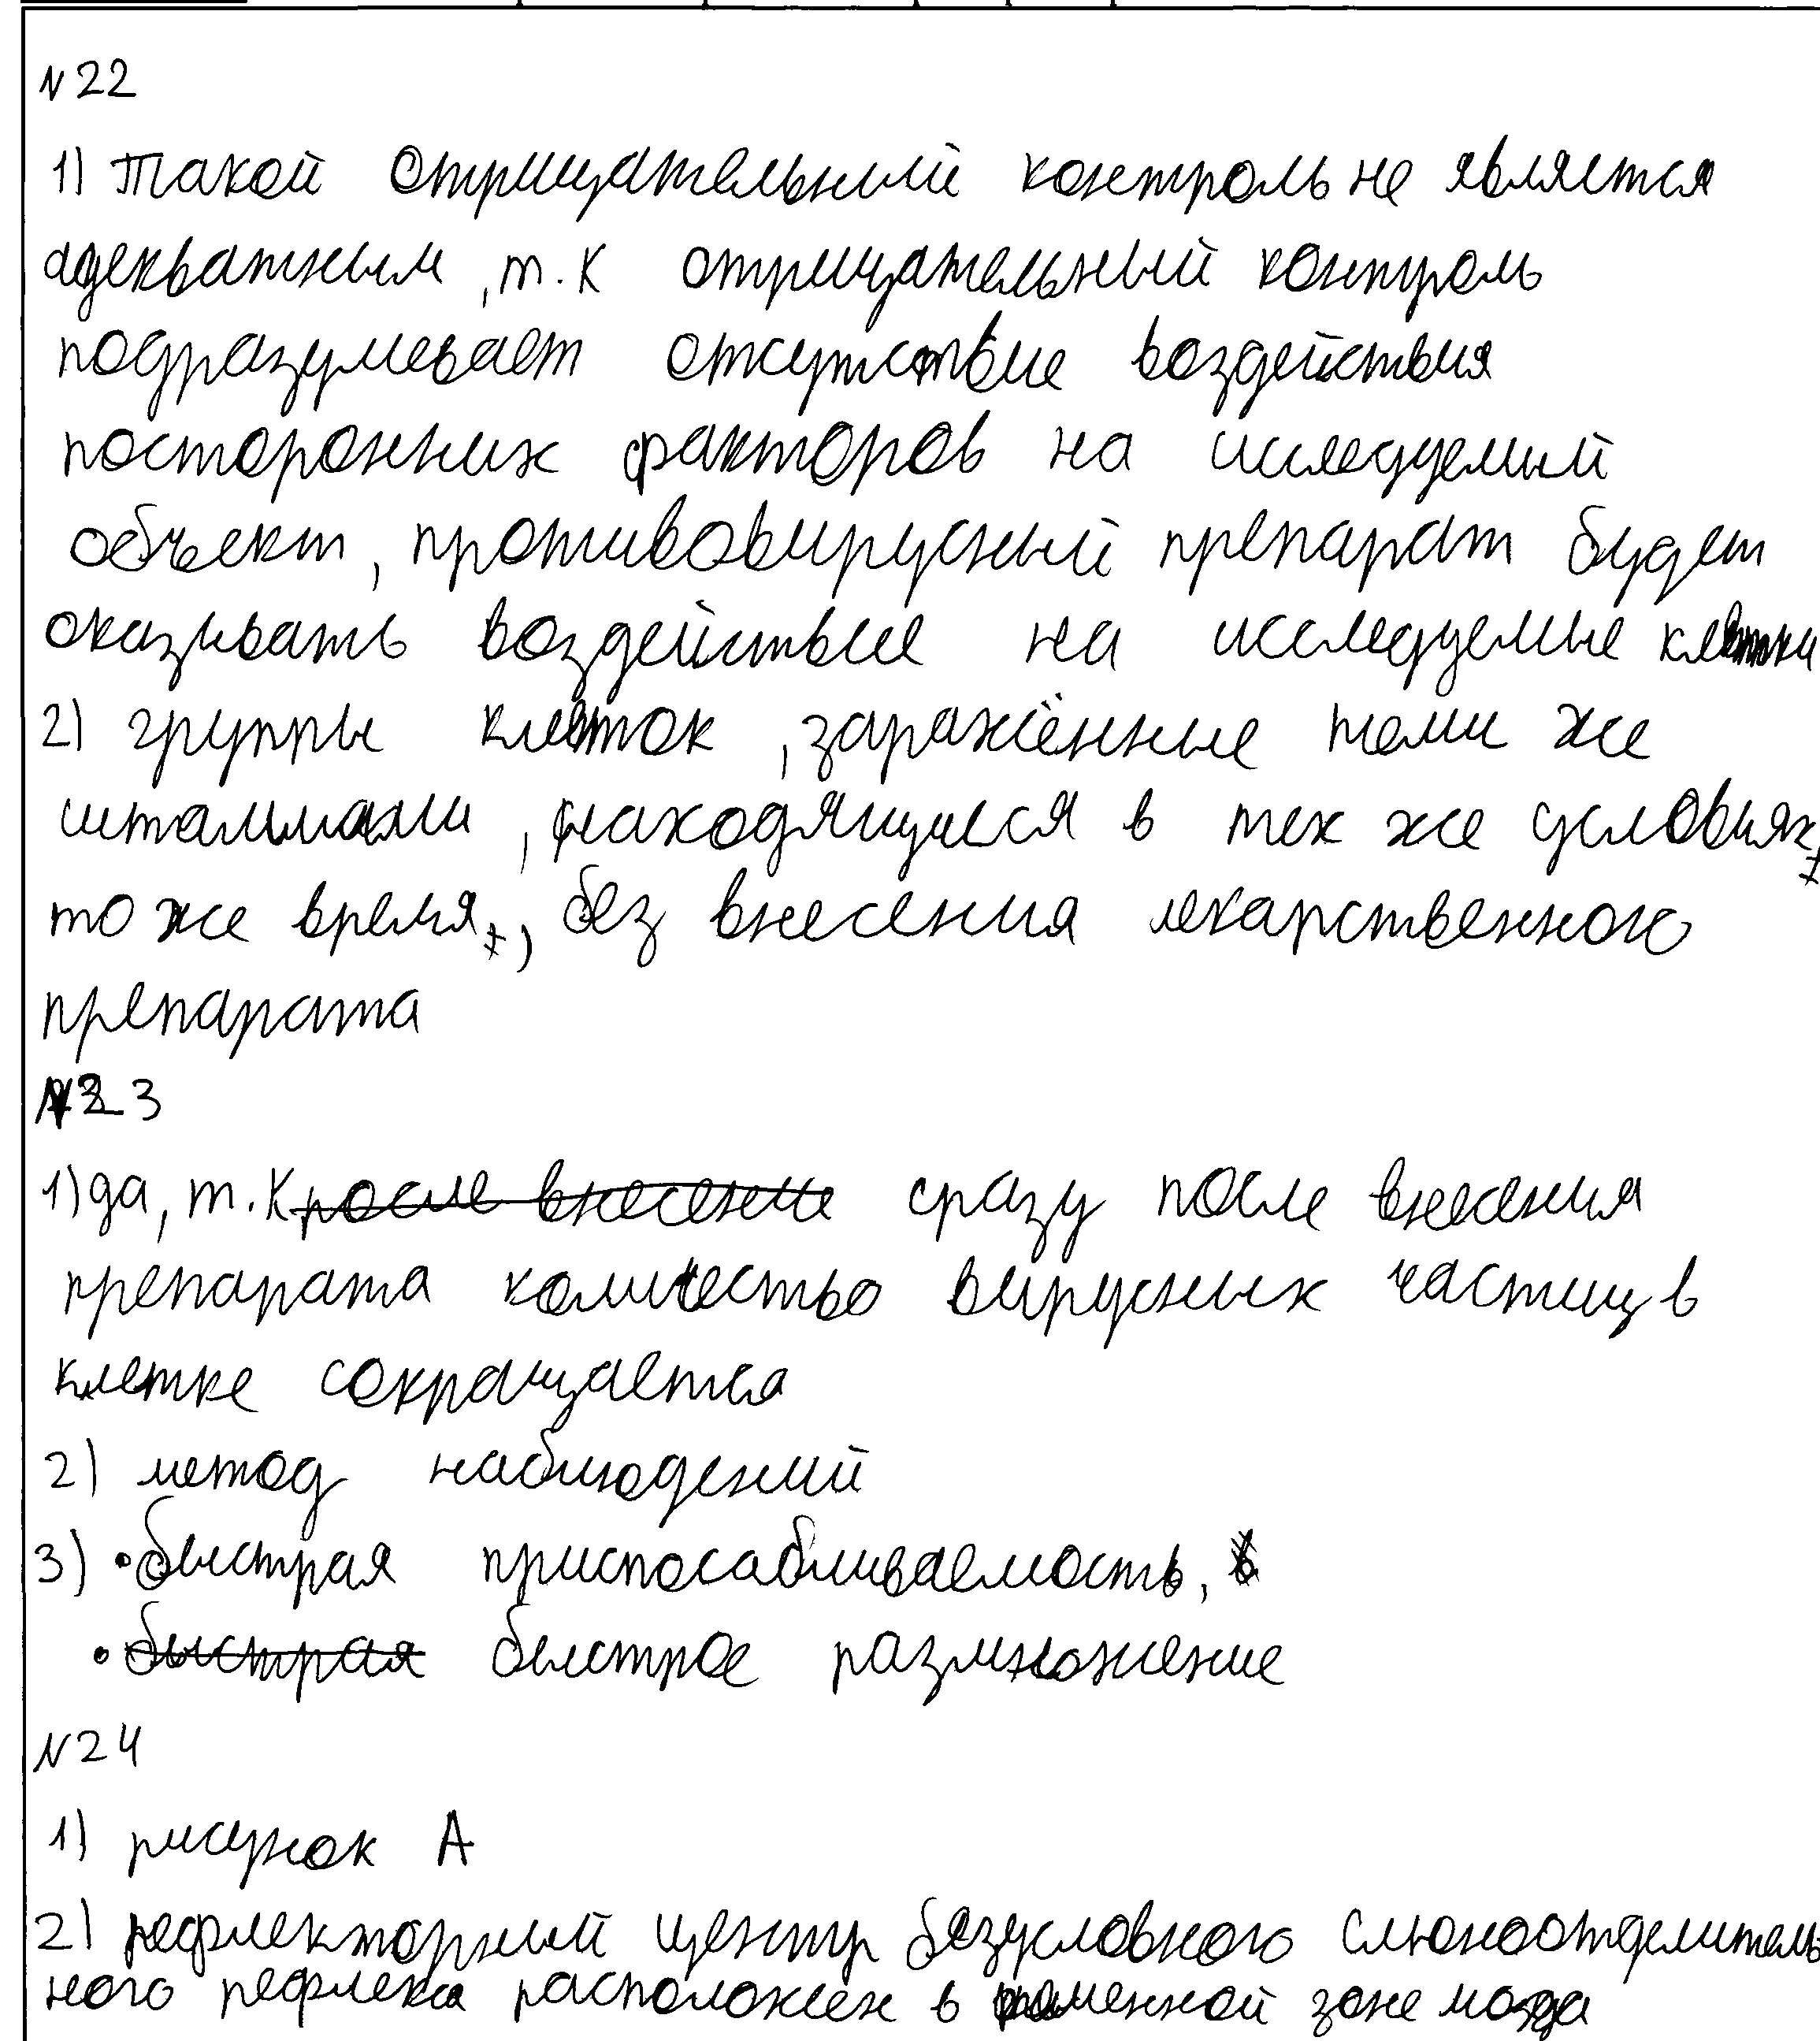 №22
1) Такой отрицательный контроль не является
адекватным, т.к отрицательный контроль
подразумевает отсутствие воздействия
посторонних факторов на исследуемый
объект, противовирусный препарат будет
оказывать воздействие на исследуемые клетки
2) группы клеток, заражённые теми же
штаммами, находящиеся в тех же условиях,
то же время, без внесения лекарственного
препарата
№23
1) да, т.к после внесение сразу после внесения
препарата количество вирусных частиц в
клетке сокращается
2) метод наблюдений
3) • быстрая приспосабливаемость,
• быстрая быстрое размножение
№24
1) рисунок А
2) рефлекторный центр безусловного слюноотделитель
ного рефлекса расположен в теменной зоне мозга